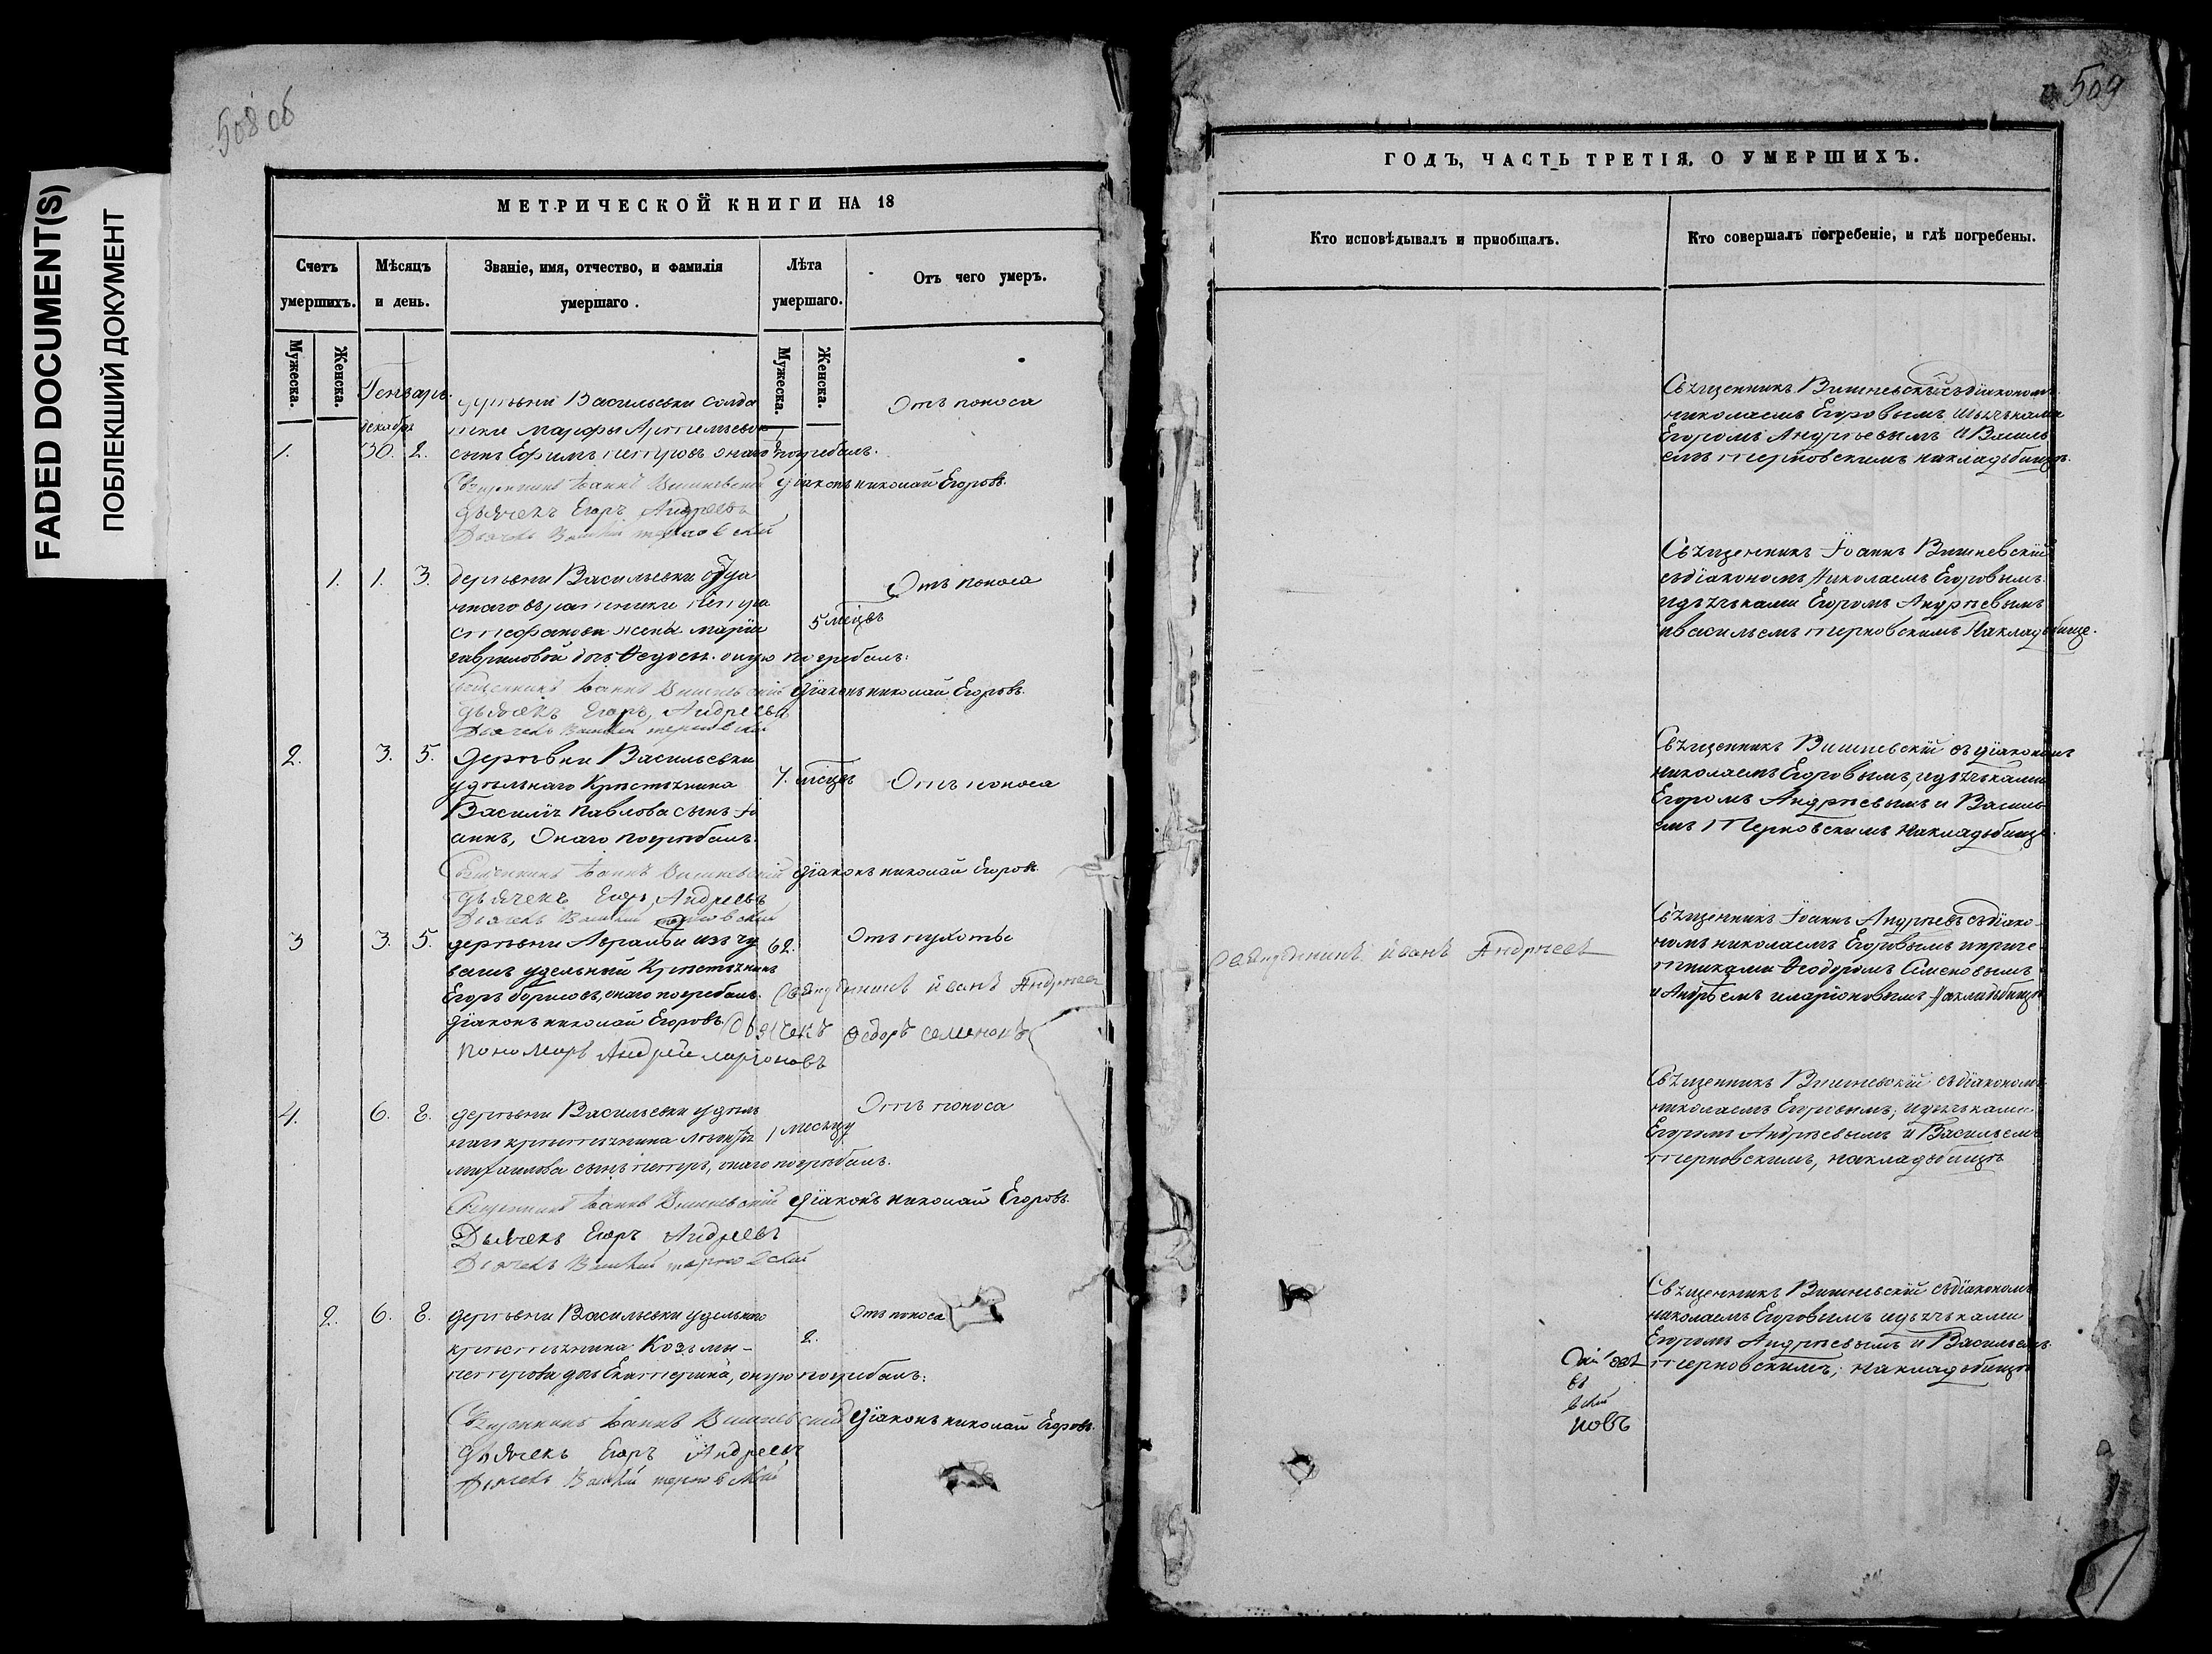 FADED DOCUMENT(S)
ПОБЛЕКШИЙ ДОКУМЕНТ
508 об
МЕТРИЧЕСКОЙ КНИГИ НА 18
Счетъ умершихъ.
Мѣсяцъ и день.
Званіе, имя, отчество, и фамилія умершаго.
Лѣта умершаго.
Отъ чего умеръ.
Мужеска.
Женска.
Мужеска.
Женска.
Генварь
декабрь
1. 30. 2.
деревни Васильевки солда
тки Марфы Артемьевой
сынъ Ефимъ Петровъ онаго погребалъ.
Отъ поноса
Священникъ Іоаннъ Вишневскій Діаконъ николай Егоровъ.
Дьячекъ Егоръ Андреевъ
Дьячекъ Василій терновскій
1. 1. 3.
деревни Васильевки
Петра
Стефанова жены Маріи
гавриловой дочь оную погребалъ:
5 месцовъ
Отъ поноса
Священникъ Іоаннъ Вишневскій Діаконъ николай Егоровъ.
Дьячекъ Егоръ Андреевъ
Дьячекъ Василій терновскій
2. 3. 5.
Деревни Васильевки
удѣльнаго Крестьянина
Василія Павлова сынъ Іо
аннъ, Онаго погребалъ.
7. месцовъ
Отъ поноса
Священникъ Іоаннъ Вишневскій Діаконъ николай Егоровъ.
Дьячекъ Егоръ Андреевъ
Дьячекъ Василій терновскій
3 3. 5.
деревни изъ чу
вашъ удельный Крестьянинъ
Егоръ борисовъ, онаго погребалъ.
62.
Отъ
Священникъ иванъ Андреевъ
Діаконъ николай Егоровъ Дьячекъ Ѳедоръ семеновъ
Пономарь Андрей ларіоновъ
4. 6. 8.
деревни Васильевки удель
наго крестьянина
михаилова сынъ петръ, онаго погребалъ.
1 месецу
Отъ поноса
Священникъ Іоаннъ Вишневскій Діаконъ николай Егоровъ.
Дьячекъ Егоръ Андреевъ
Дьячекъ Василій терновскій
2. 6. 8.
деревни Васильевки удельнаго
крестьянина Козьмы
петрова дочь Екатерина, оную погребалъ:
2.
Отъ поноса
Священникъ Іоаннъ Вишневскій Діаконъ николай Егоровъ.
Дьячекъ Егоръ Андреевъ
Дьячекъ Василій терновскій
509
ГОДЪ, ЧАСТЬ ТРЕТІЯ, О УМЕРШИХЪ.
Кто исповѣдывалъ и пріобщалъ.
Кто совершалъ погребеніе, и гдѣ погребены.
Священникъ Вишневскій съ діакономъ
николаемъ Егоровымъ и дьячьками
Егоромъ Андреевымъ и Василь
емъ терновскимъ на кладьбищѣ.
Священникъ Іоаннъ Вишневскій
съ діакономъ Николаемъ Егоровымъ
и дьячьками Егоромъ Андреевымъ
и васильемъ терновскимъ На кладьбище.
Священникъ Вишневскій съ діакономъ
николаемъ Егоровымъ, и дьячьками
Егоромъ Андреевымъ и Василь
емъ Терновскимъ на кладьбищѣ.
Священникъ иванъ Андреевъ
Священникъ Іоаннъ Андреевъ съ діако
номъ николаемъ Егоровымъ и приче
тниками Ѳеодоромъ Сименовымъ
и Андреемъ иларіоновымъ На кладьбищѣ
Священникъ Вишневскій съ діакономъ
николаемъ Егоровымъ; и дьячьками
Егоромъ Андреевымъ и Васильемъ
терновскимъ, на кладьбищѣ
Священникъ Вишневскій съ діакономъ
николаемъ Егоровымъ и дьячьками
Егоромъ Андреевымъ и Васильемъ
терновскимъ; на кладьбищѣ
въ
вскій
новъ